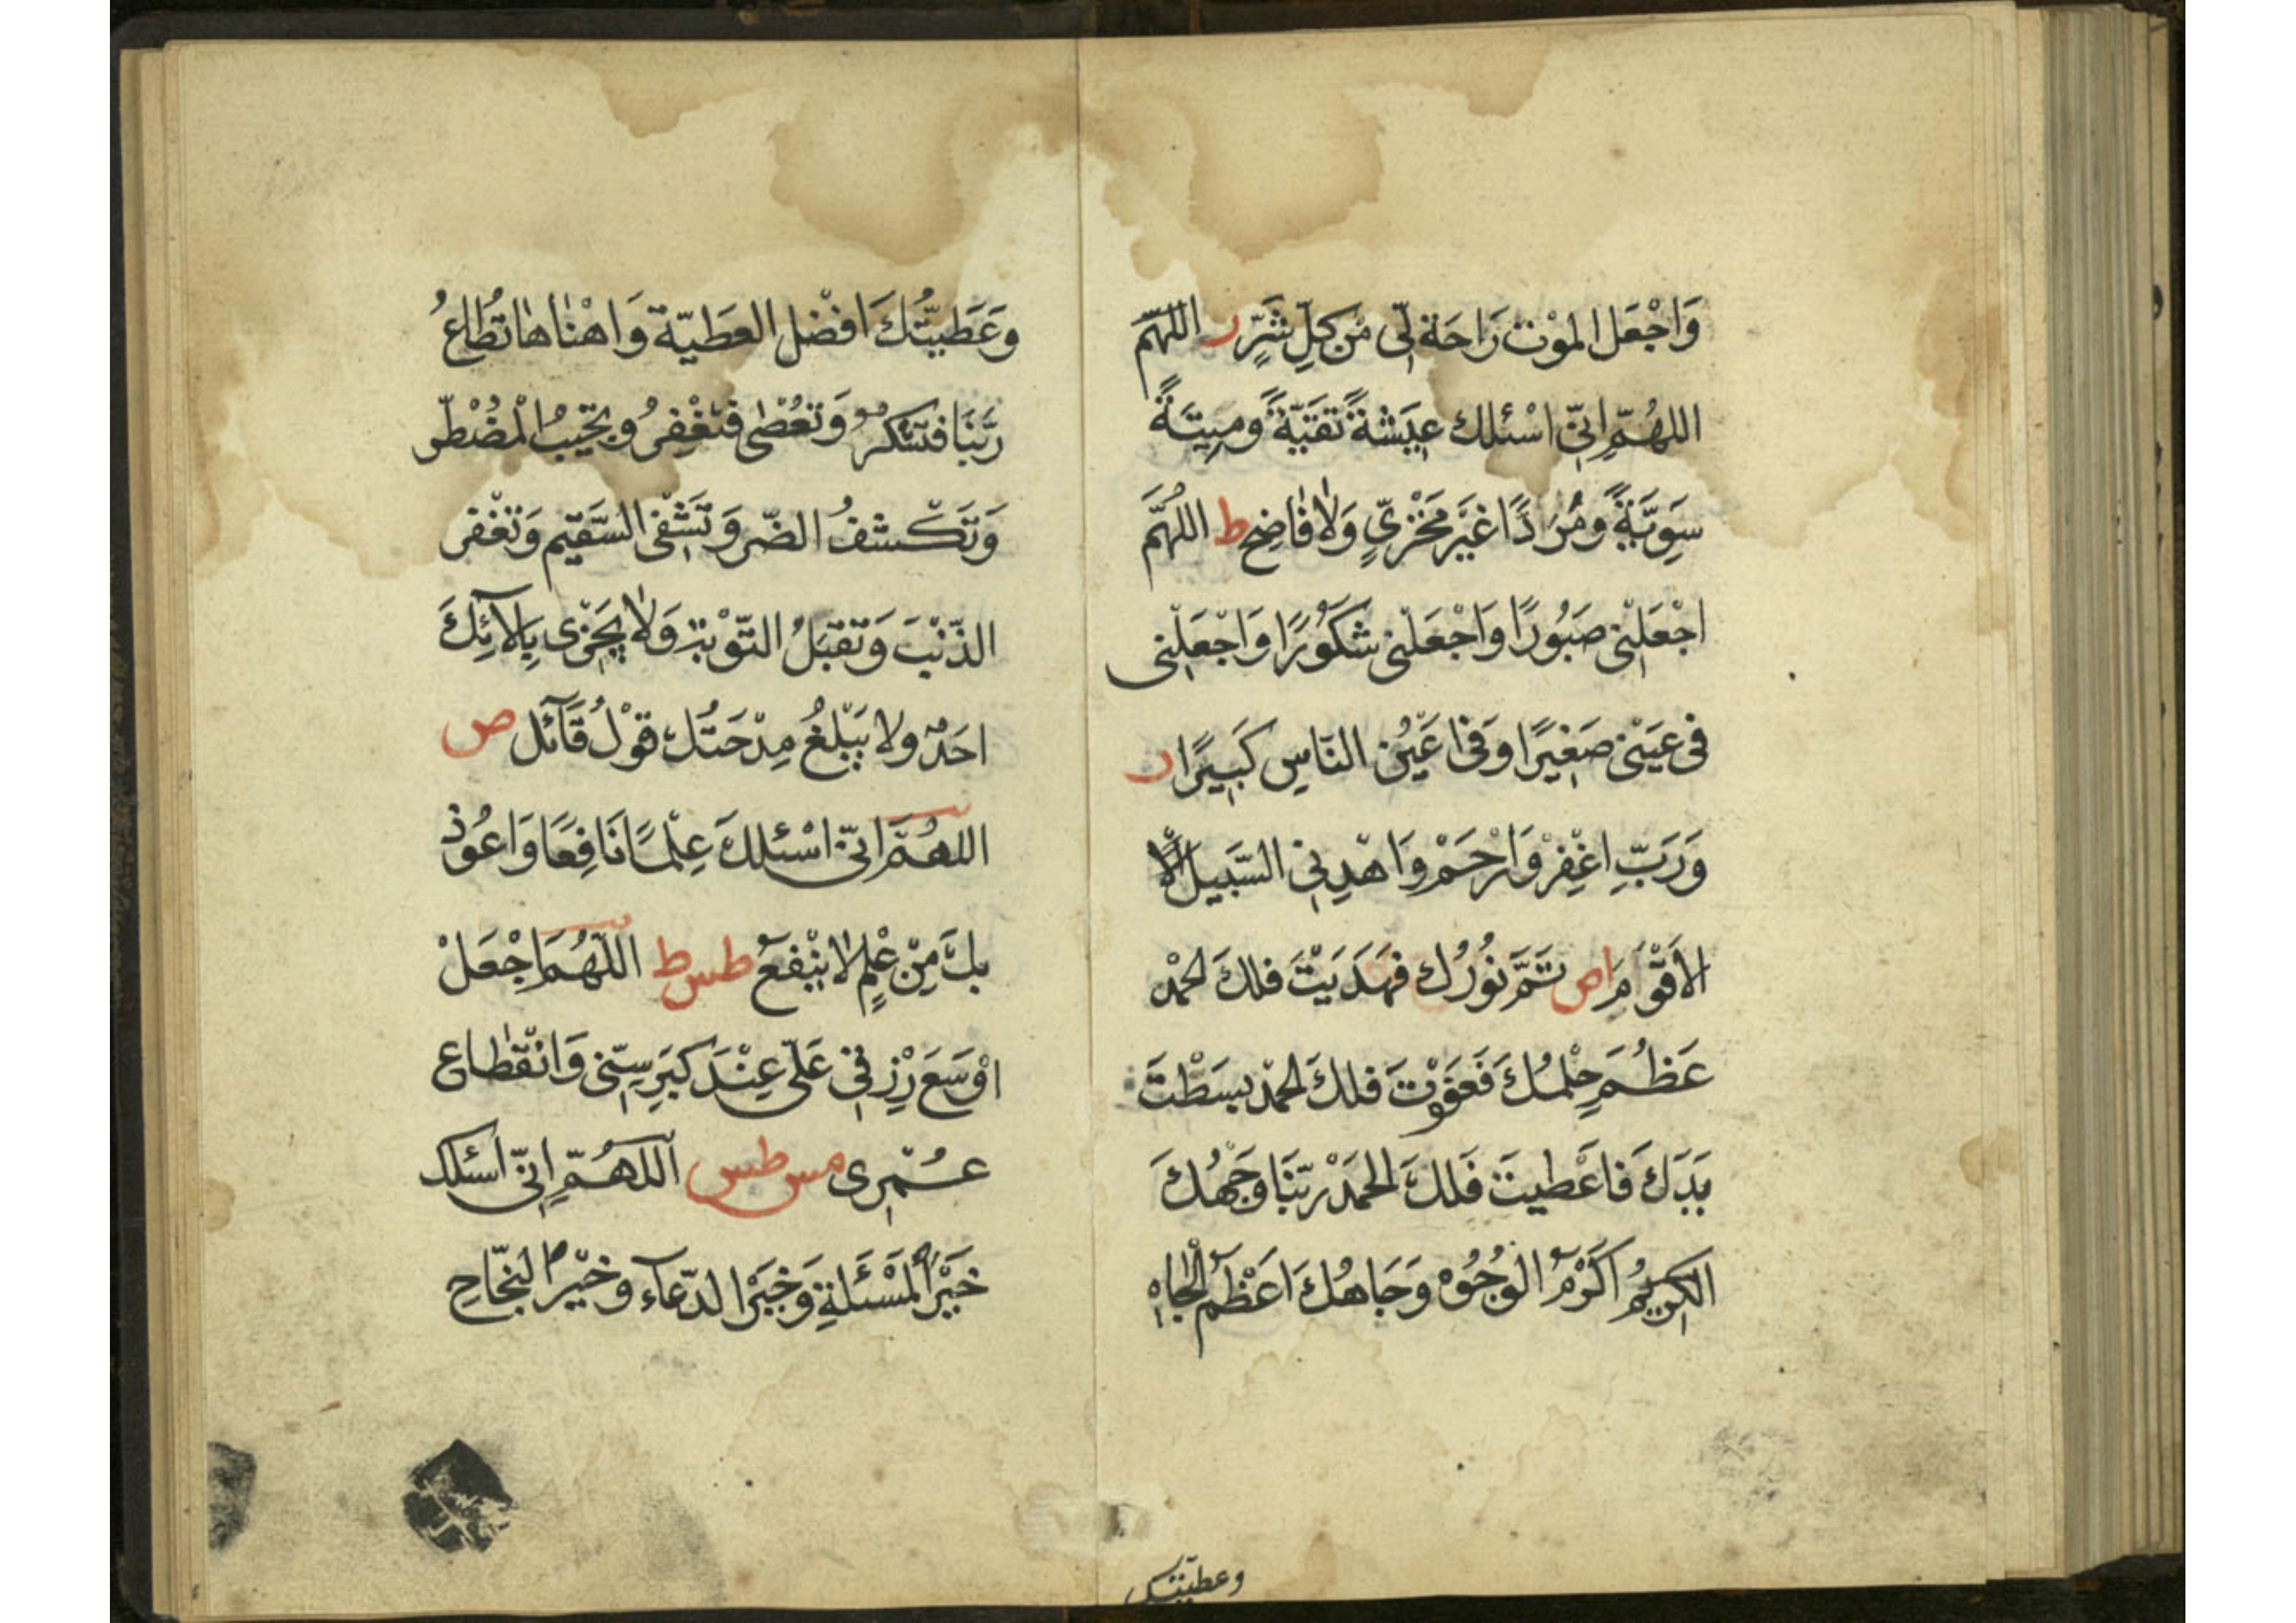 وَاجْعَلِ المَوْتَ رَاحَةً لِّى مِنْ كُلِّ شَرٍّ ر اللهُمَّ
اللهُمَّ اِنِّى اسْئلك عِيْشَةً تَقَيَّةً وَمِيتَةً
سَوِيَّةً وَمُرَدًّا غَيْرَ مَخْزِىٍّ وَلَا فَاضِحٍ ط اللهُمَّ
اجْعَلْنِى صَبُورًا وَاجْعَلْنِى شَكُوْرًا وَاجْعَلْنِى
فى عَيْنِى صَغِيرًا وَفى اَعْيُنِ النَّاسِ كَبِيرًا ر
وَرَبِّ اغْفِرْ وَارْحَمْ وَاهْدِنِى السَّبِيلَ الْا
الاَقْوَمَ اص تَمَّ نُورُك فَهَدَيْتَ فلك الحَمْدُ
عَظُمَ حِلْمُكَ فَعَفَوْتَ فلكَ الحَمْدُ بسَطْتَ
يَدَكَ فَاعْطيتَ فَلَكَ الحَمْدُ رَبَّنَا وَجْهُكَ
الكَرِيْمُ اَكْرَمُ الوُجُوْهِ وَجَاهُكَ اَعْظَمُ الْجَاهِ
وعطيتك
وَعَطِيَّتُكَ اَفْضَلُ العَطِيّةِ وَاهْنَاهَا تُطَاعُ
رَبَّنَا فَتَشْكُرُ وَتُعْصٰى فَتَغْفِرُ وَتُجِيْبُ الْمُضْطَرَّ
وَتَكْشفُ الضُّرَّ وَتَشْفِى السَّقِيْمَ وَتَغْفِرُ
الذَّنْبَ وَتَقْبَلُ التَّوْبَةَ وَلَا يَجْزِى بِاٰلَآئِكَ
اَحَدٌ ولا يَبْلُغُ مِدْحَتَكَ قَوْلُ قَآئلٍ ص
اللهُمَّ اِنِّى اسْئلكَ عِلْمًا نَافِعًا وَاعُوْذُ
بِكَ مِنْ عِلْمٍ لَا يَنْفَعُ طس ط اللّٰهُمَّ اجْعَلْ
اَوْسَعَ رِزْقِكَ عَلَىَّ عِنْدَ كِبَرِ سِنِّى وَانْقِطَاعِ
عُمْرِى مس طس اللهُمَّ اِنِّى اَسْئلك
خَيْرَ الْمَسْئَلَةِ وَخَيْرَ الدّعآءِ وَخَيْرَ النَّجَاحِ